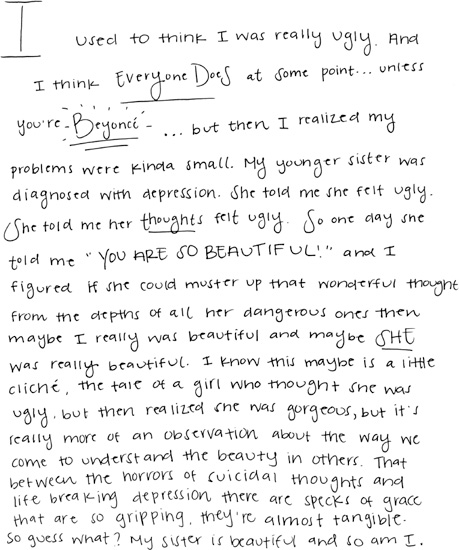 I used to think I was really ugly. And
I think Everyone Does at some point... unless
you're - Beyoncé - ... but then I realized my
problems were kinda small. My younger sister was
diagnosed with depression. She told me she felt ugly.
She told me her thoughts felt ugly. So one day she
told me "YOU ARE SO BEAUTIFUL!" and I
figured if she could muster up that wonderful thought
from the depths of all her dangerous ones then
maybe I really was beautiful and maybe SHE
was really beautiful. I know this maybe is a little
cliché, the tale of a girl who thought she was
ugly, but then realized she was gorgeous, but it's
really more of an observation about the way we
come to understand the beauty in others. That
between the horrors of suicidal thoughts and
life breaking depression there are specks of grace
that are so gripping, they're almost tangible.
So guess what? My sister is beautiful and so am I.